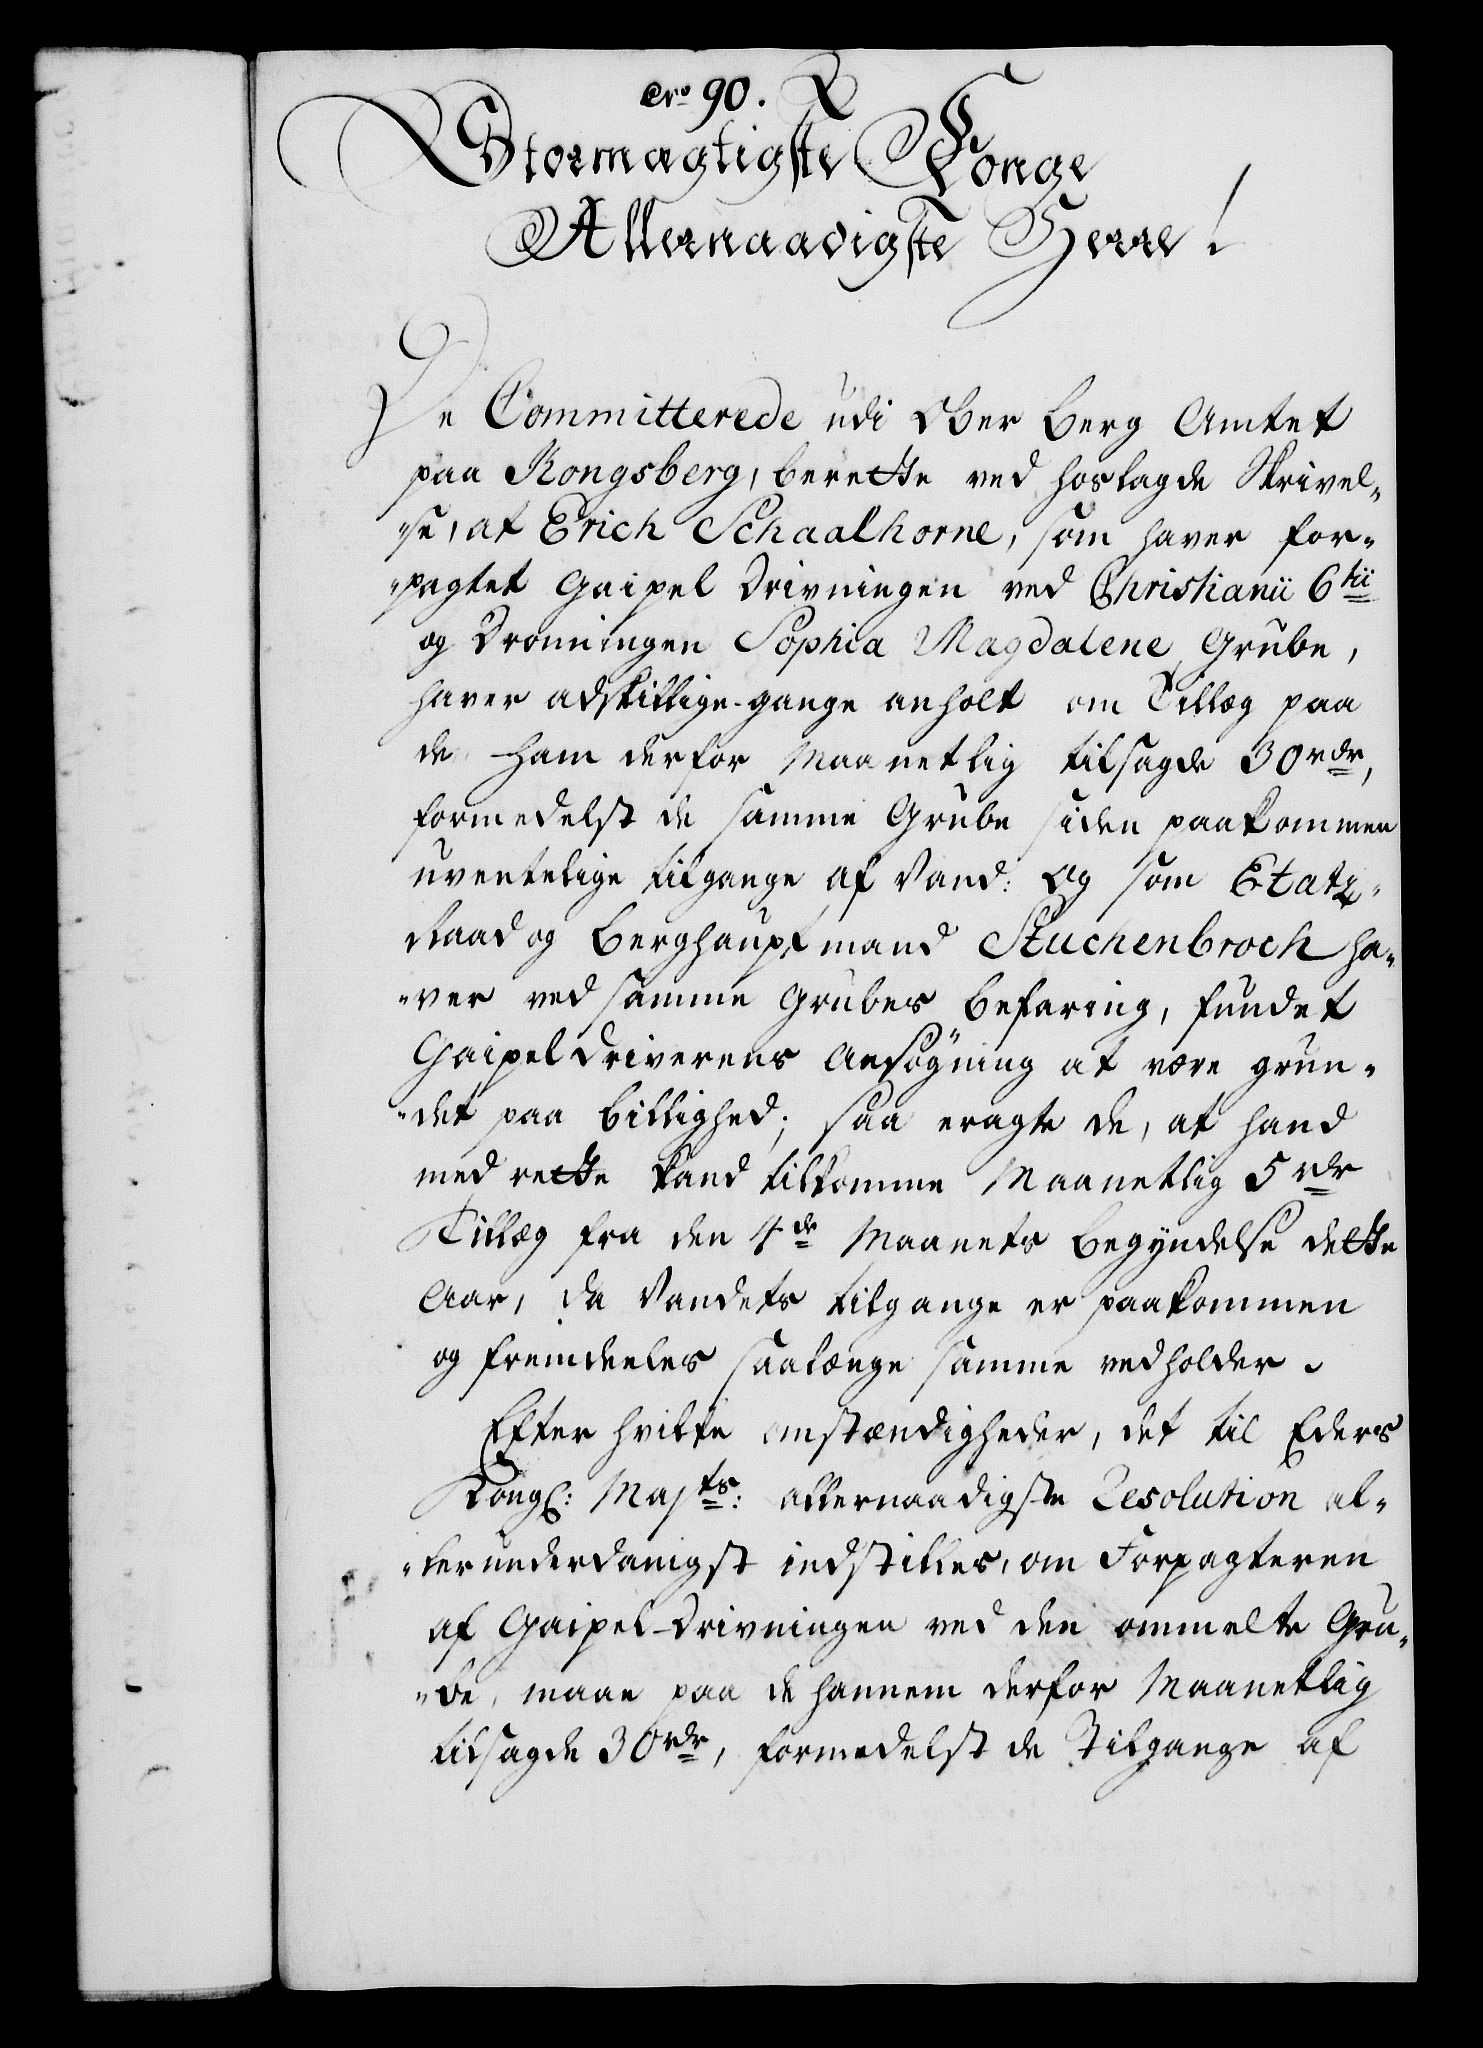 Nro 90.
Stormægtigste Konge
Allernaadigste Herre!
De Committerede udi Ober Berg Amtet
paa Kongsberg, berette ved hoslagde Skrivel„
„se, at Erich Schaalhorne, som haver for„
„pagtet Gaipel Drivningen ved Christianii 6tii
og Dronningen Sophia Magdalene Grube,
haver adskillige gange anholt om Tillæg paa
de ham derfor Maanetlig tilsagde 30 rdr,
formedelst de samme Grube siden paakommen
uventelige tilgange af Vand: Og som Etatz„
Raad og Berghauptmand Stuchenbroch ha„
„ver ved samme Grubes Befaring, fundet
Gaipeldriverens Ansøgning at være grun„
„det paa billighed; saa eragte de, at hand
med rette kand tilkomme Maanetlig 5 rdr
Tillæg fra den 4de Maanets Begyndelse dette
Aar, da Vandets tilgange er paakommen
og fremdeeles saalænge samme vedholder.
Efter hvilke omstændigheder, det til Eders
Kongl: Majts: allernaadigste Resolution al„
„lerunderdanigst indstilles, om Forpagteren
af Gaipel-Drivningen ved den ommelte Gru„
„be, maae paa de hannem derfor Maanetlig
tilsagde 30 rdr, formedelst de Tilgange af